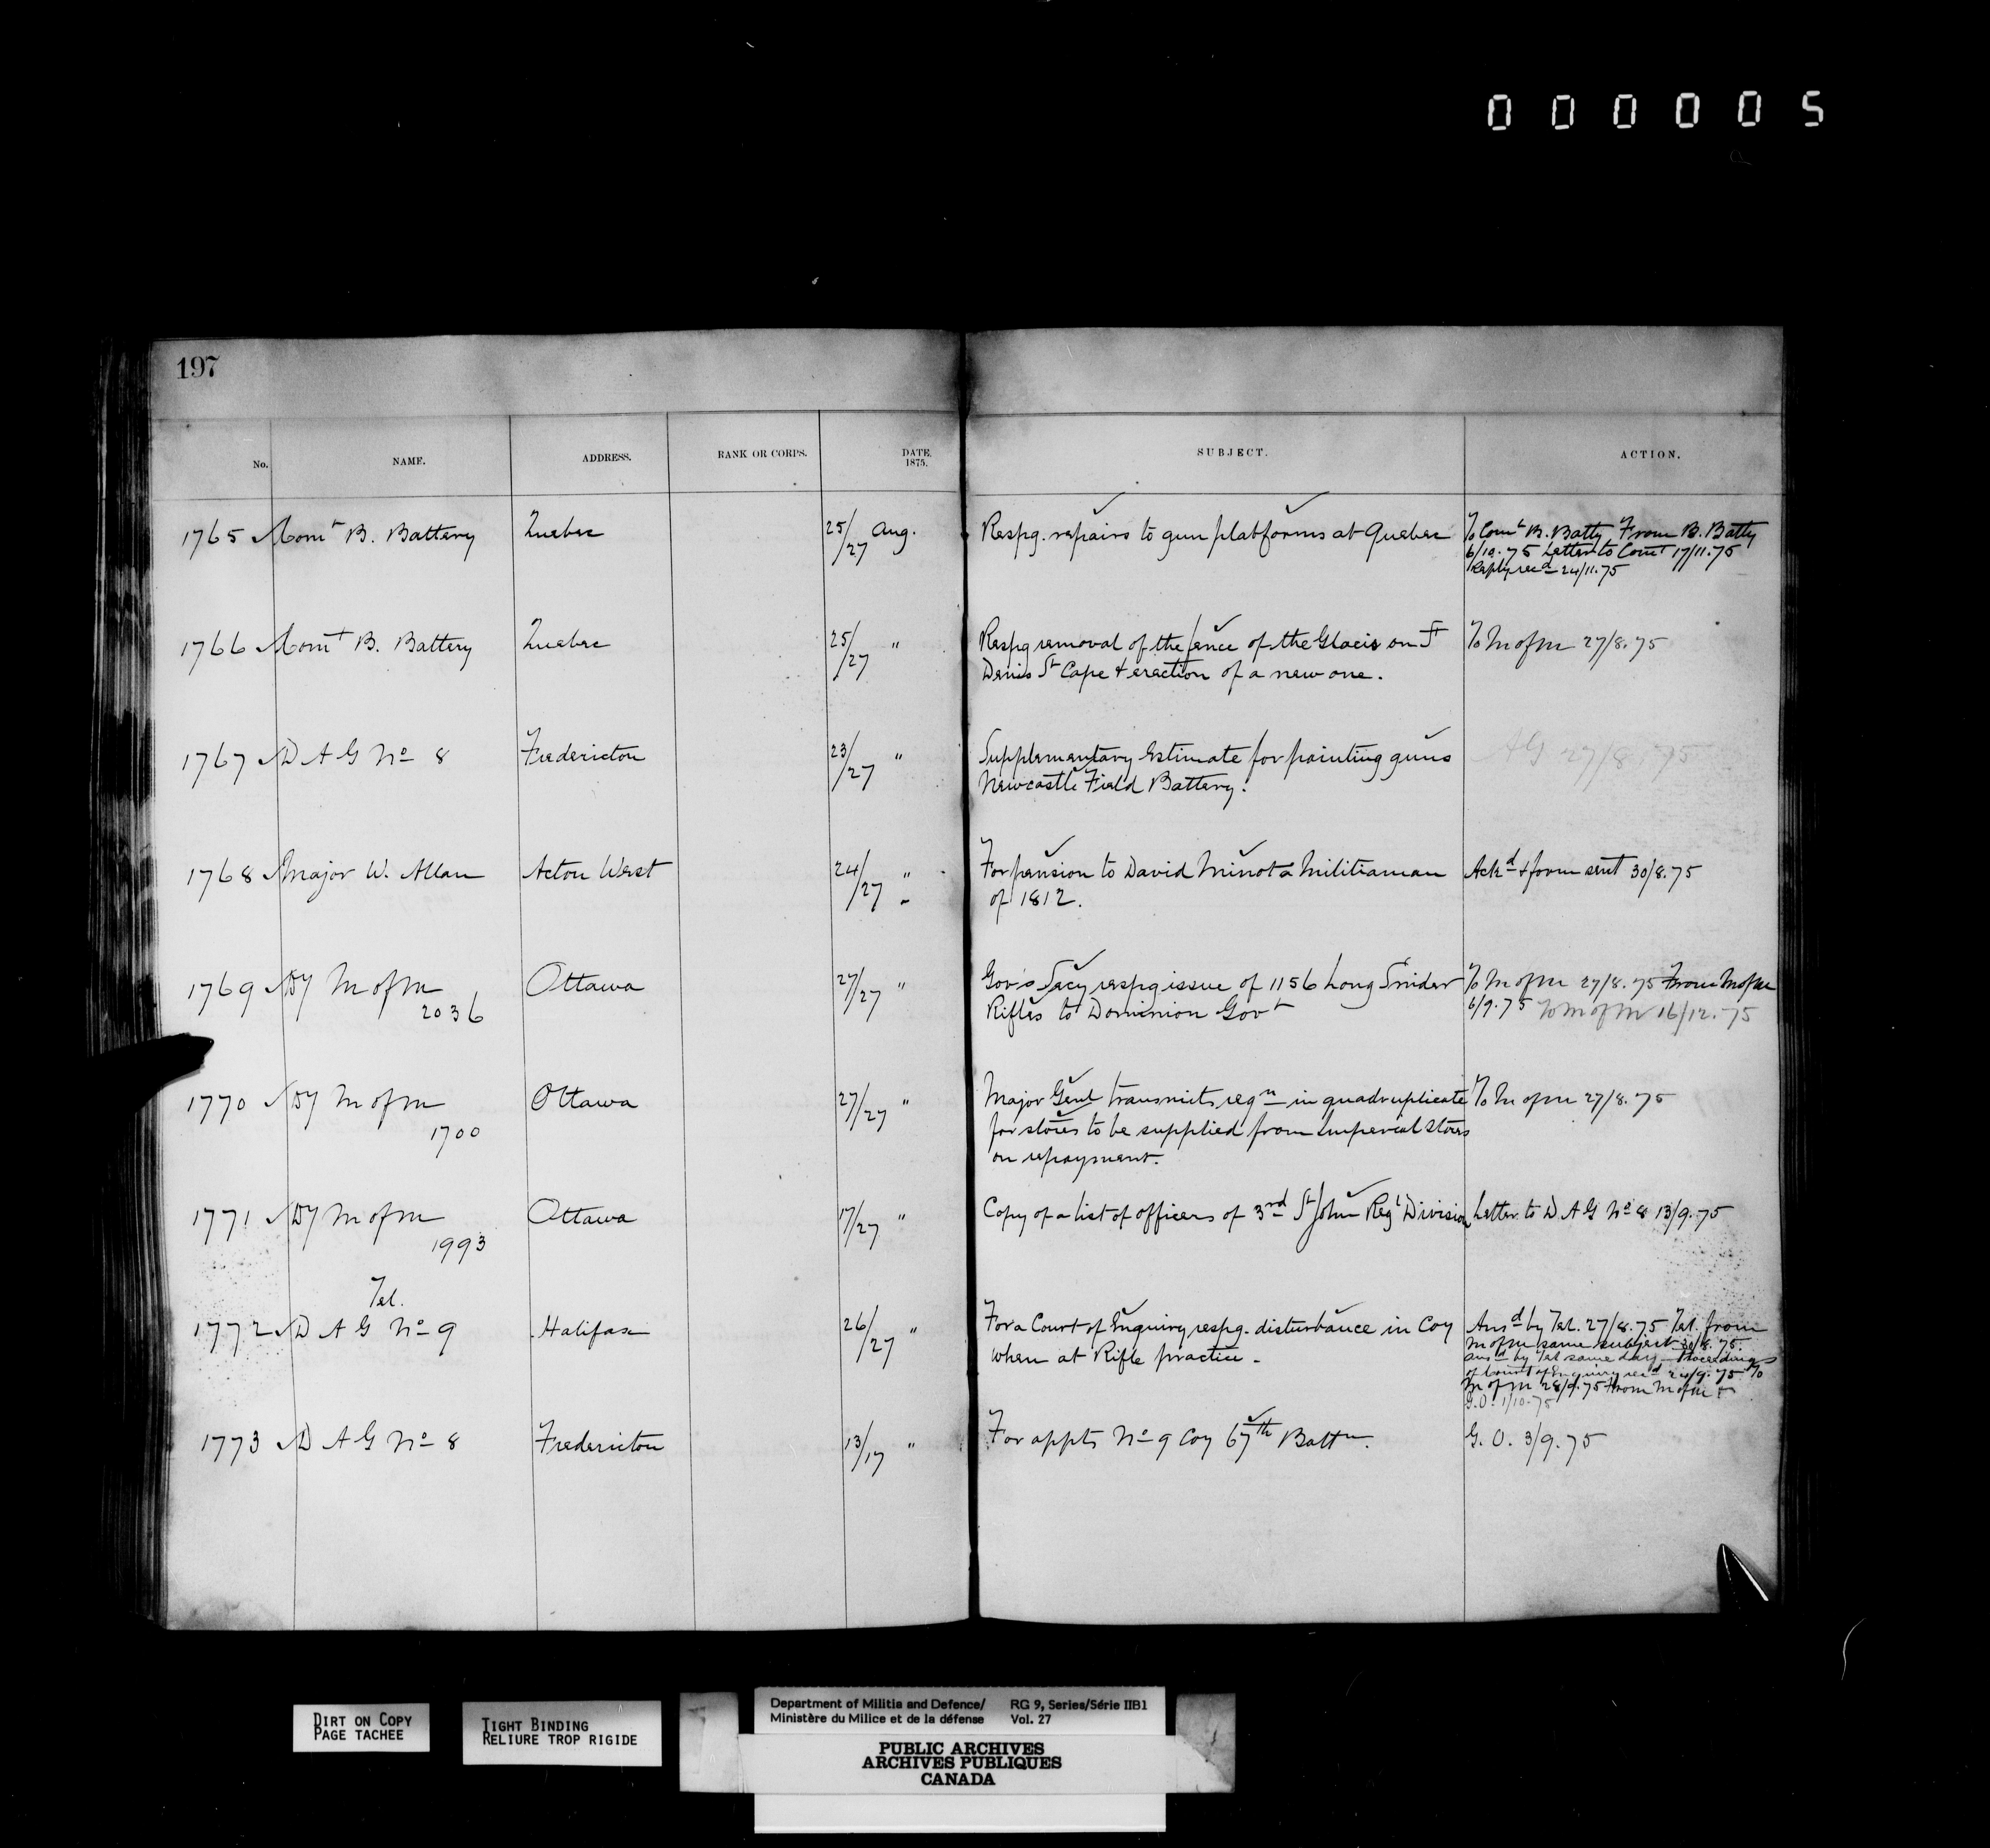 000005
197
No. NAME. ADDRESS. RANK OR CORPS. DATE, 1875. SUBJECT. ACTION.
1765 Comt B. Battery Quebec 25/27 Aug. Respg. repairs to gun platforms at Quebec To Comt B. Batty From B. Batty
6/10.75 Letter to Comt 17/11.75
Reply recd 24/11.75
1766 Comt B. Battery Quebec 25/27 " Respg removal of the fence of the Glacis on St To M of M 27/8.75
Denis St Cape & erection of a new one.
1767 D A G No 8 Fredericton 23/27 " Supplementary Estimate for painting guns AG 27/8.75
Newcastle Field Battery.
1768 Major W. Allan Acton West 24/27 " For pension to David Minot a Militiaman Ackd & form sent 30/8.75
of 1812.
1769 Dy M of M Ottawa 27/27 " Gov's Secy respg issue of 1156 Long Snider To M of M 27/8.75 From M of M
2036 Rifles to Dominion Govt 6/9.75 To M of M 16/12.75
1770 Dy M of M Ottawa 27/27 " Major Genl transmits reqn in quadruplicate To M of M 27/8.75
1700 for stores to be supplied from Imperial Stores
on repayment.
1771 Dy M of M Ottawa 17/27 " Copy of a list of officers of 3rd St John Regl Division Letter to D A G No 8 13/9.75
1993
Tel.
1772 D A G No 9 Halifax 26/27 " For a Court of Enquiry respg. disturbance in Coy Ansd by Tel. 27/8.75 Tel. from
when at Rifle practice. M of M same subject 30/8.75.
Ansd by Tel same day Proceedings
of Court of Enquiry recd 24/9.75 To
M of M 28/9.75 From M of M
G.O. 1/10.75
1773 D A G No 8 Fredericton 13/17 " For appts No 9 Coy 67th Battn. G. O. 3/9.75
DIRT ON COPY
PAGE TACHEE
TIGHT BINDING
RELIURE TROP RIGIDE
Department of Militia and Defence/ RG 9, Series/Série IIB1
Ministère du Milice et de la défense Vol. 27
PUBLIC ARCHIVES
ARCHIVES PUBLIQUES
CANADA